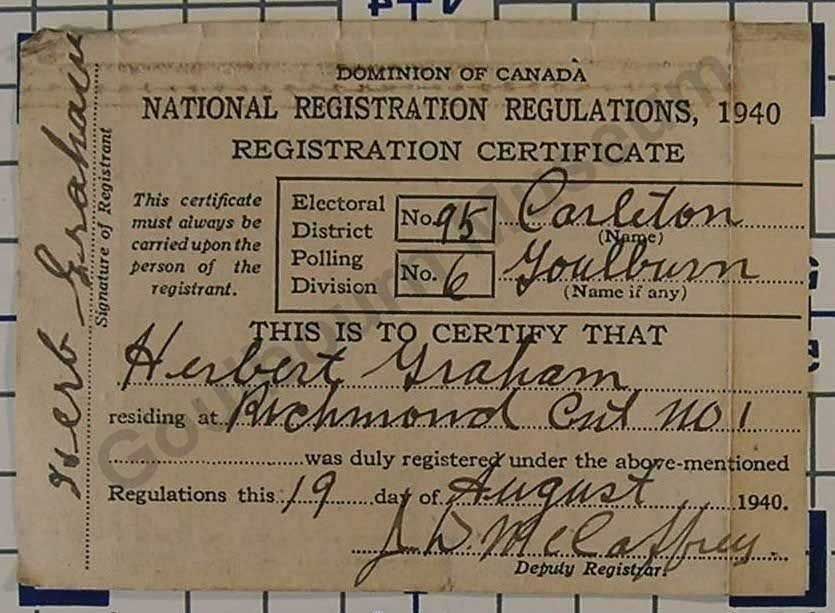 DOMINION OF CANADA
NATIONAL REGISTRATION REGULATIONS, 1940
REGISTRATION CERTIFICATE
This certificate must always be carried upon the person of the registrant.
Electoral District No. 95 Carleton
(Name)
Polling Division No. 6 Goulburn
(Name if any)
THIS IS TO CERTIFY THAT
Herbert Graham
residing at Richmond Ont No 1
was duly registered under the above-mentioned
Regulations this 19 day of August 1940.
J. D. McCaffrey
Deputy Registrar.
Herb Graham
Signature of Registrant
Goulburn Museum